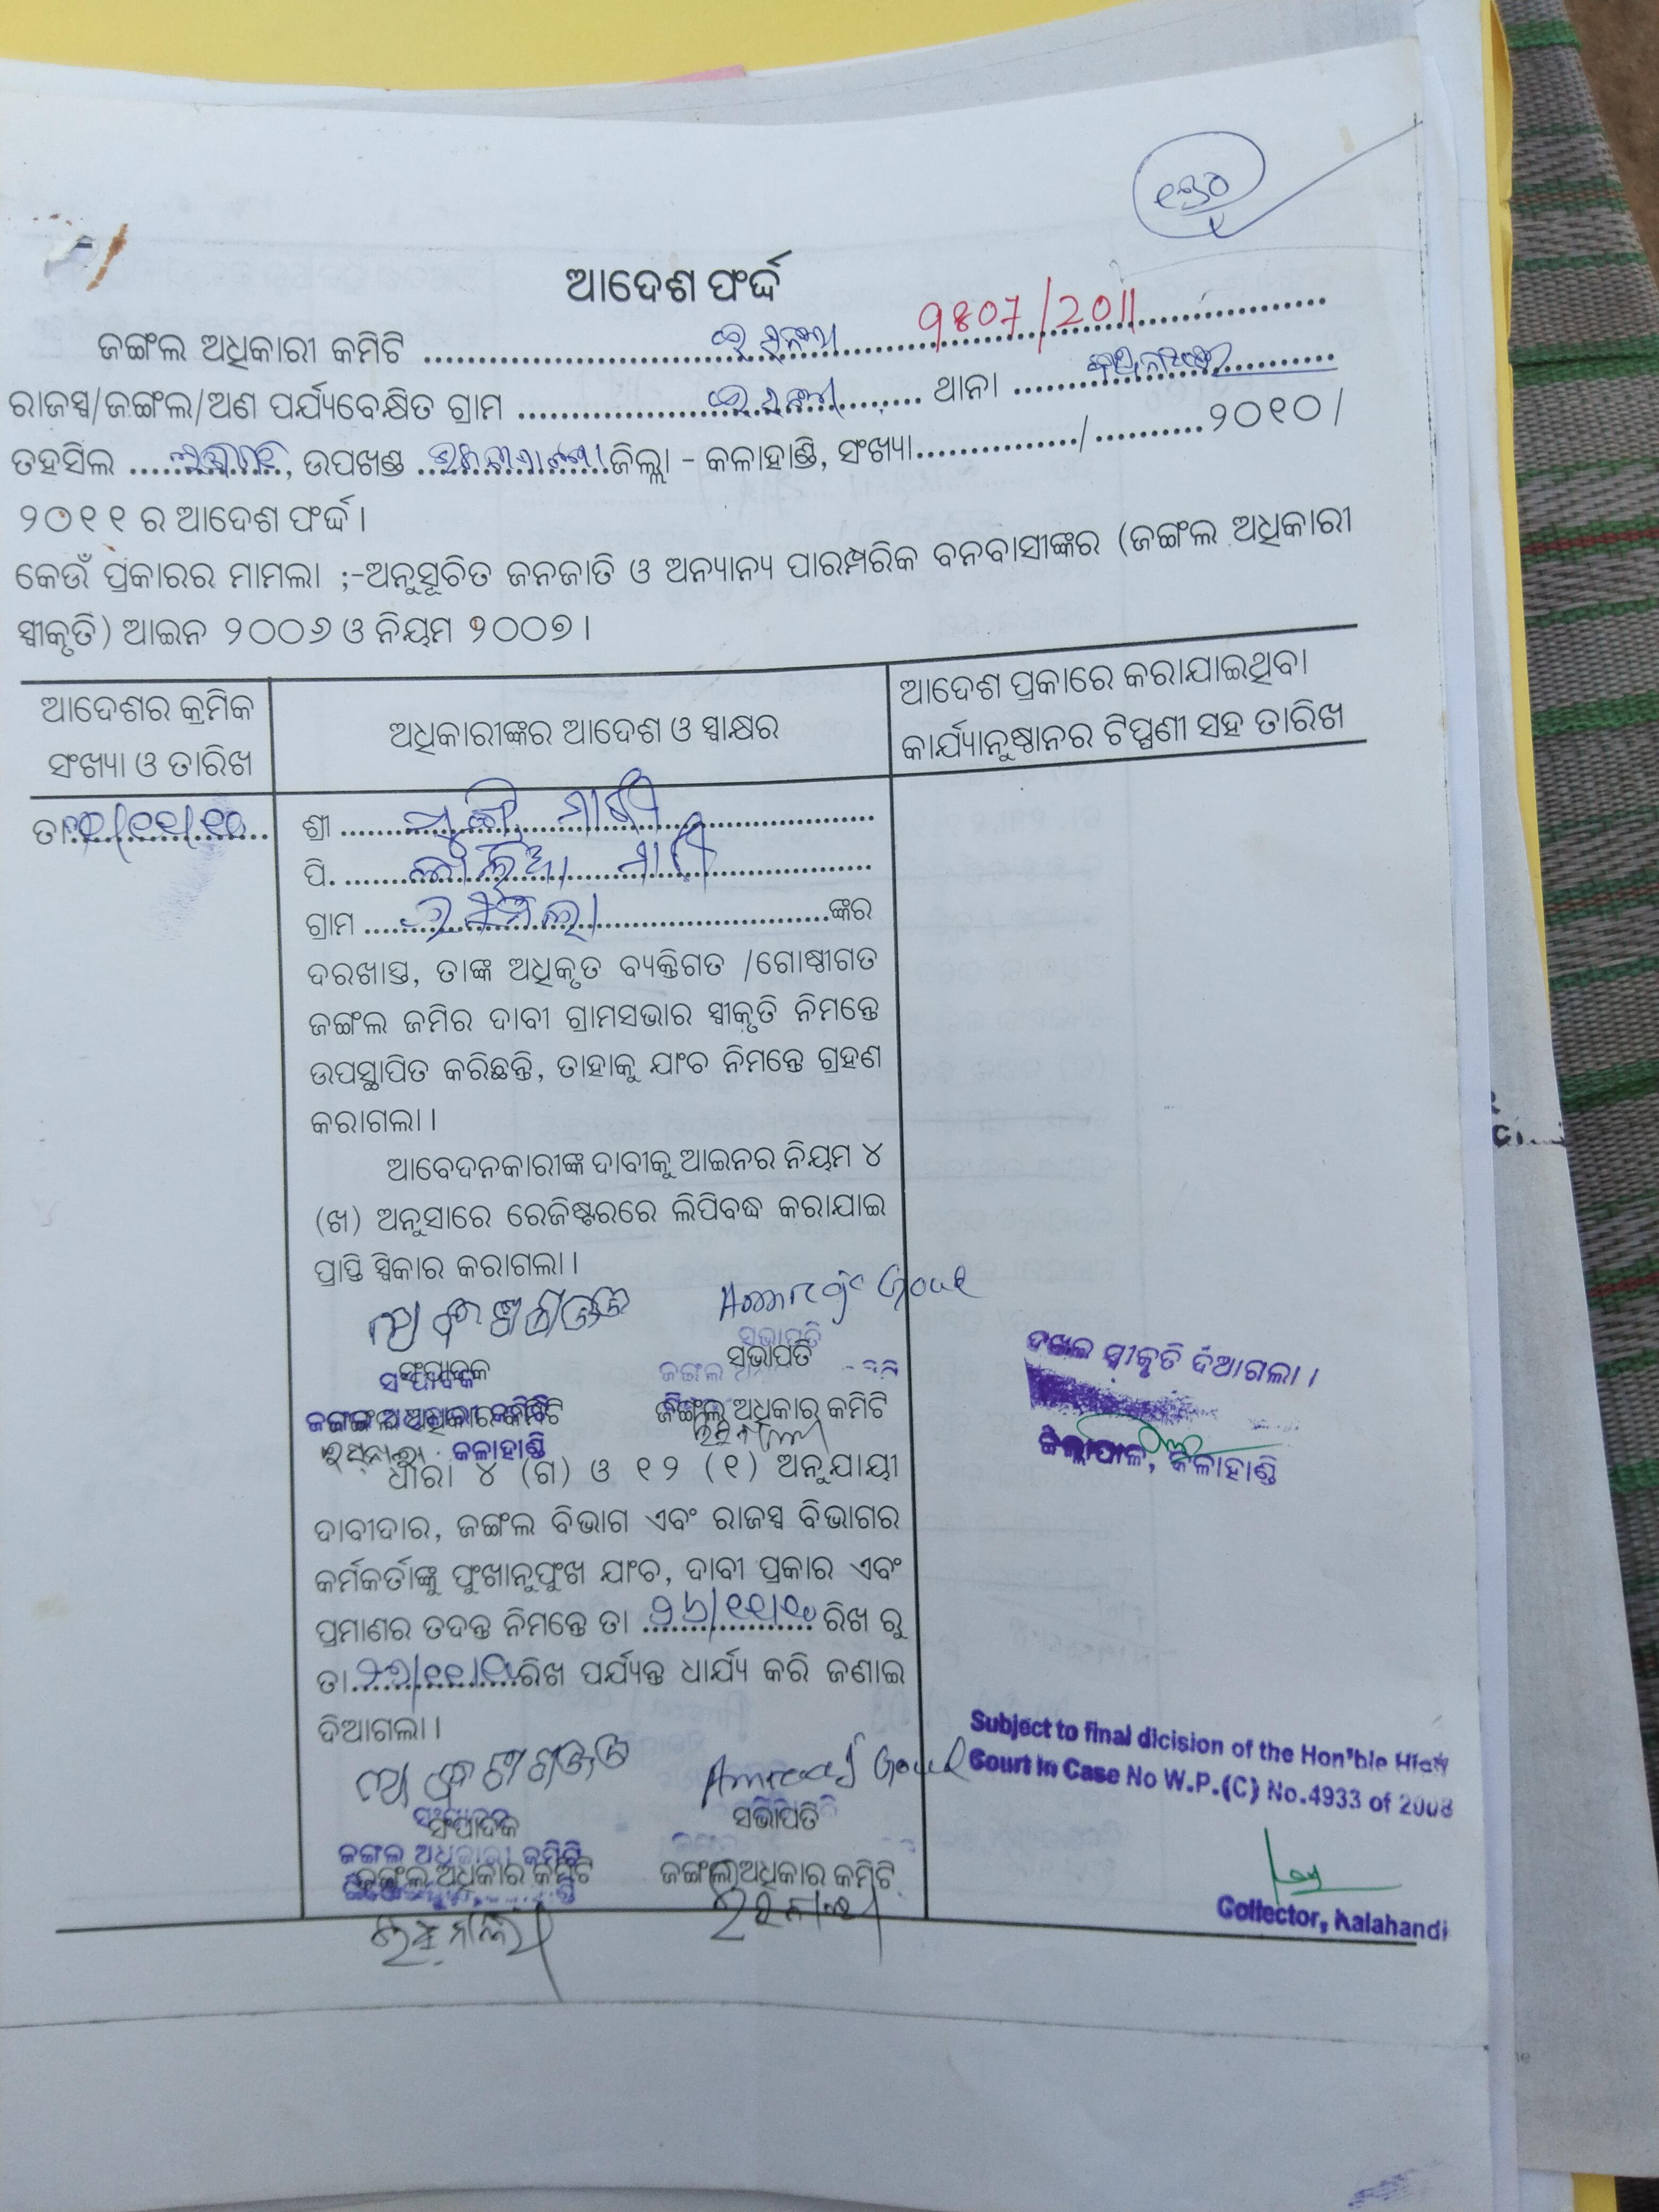 ୧୨୦
ଆଦେଶ ଫର୍ଦ୍ଦ
9807/2011
ଜଙ୍ଗଲ ଅଧିକାରୀ କମିଟି ....................
ରାଜସ୍ୱ/ଜଙ୍ଗଲ/ଅଣ ପର୍ଯ୍ୟବେକ୍ଷିତ ଗ୍ରାମ .................... ଥାନା ....................
ତହସିଲ ............, ଉପଖଣ୍ଡ ............ଜିଲ୍ଲା - କଳାହାଣ୍ଡି, ସଂଖ୍ୟା............/..........୨୦୧୦/
୨୦୧୧ ର ଆଦେଶ ଫର୍ଦ୍ଦ।
କେଉଁ ପ୍ରକାରର ମାମଲା ;-ଅନୁସୂଚିତ ଜନଜାତି ଓ ଅନ୍ୟାନ୍ୟ ପାରମ୍ପରିକ ବନବାସୀଙ୍କର (ଜଙ୍ଗଲ ଅଧିକାରୀ
ସ୍ୱୀକୃତି) ଆଇନ ୨୦୦୬ ଓ ନିୟମ ୨୦୦୭।
ଆଦେଶର କ୍ରମିକ
ସଂଖ୍ୟା ଓ ତାରିଖ
ଅଧିକାରୀଙ୍କର ଆଦେଶ ଓ ସ୍ୱାକ୍ଷର
ଆଦେଶ ପ୍ରକାରେ କରାଯାଇଥିବା
କାର୍ଯ୍ୟାନୁଷ୍ଠାନର ଟିପ୍ପଣୀ ସହ ତାରିଖ
ତା
ଶ୍ରୀ ............ ମାଝି
ପି. ............ ମାଝି
ଗ୍ରାମ ....................ଙ୍କର
ଦରଖାସ୍ତ, ତାଙ୍କ ଅଧିକୃତ ବ୍ୟକ୍ତିଗତ /ଗୋଷ୍ଠୀଗତ
ଜଙ୍ଗଲ ଜମିର ଦାବୀ ଗ୍ରାମସଭାର ସ୍ୱୀକୃତି ନିମନ୍ତେ
ଉପସ୍ଥାପିତ କରିଛନ୍ତି, ତାହାକୁ ଯାଂଚ ନିମନ୍ତେ ଗ୍ରହଣ
କରାଗଲା।
ଆବେଦନକାରୀଙ୍କ ଦାବୀକୁ ଆଇନର ନିୟମ ୪
(ଖ) ଅନୁସାରେ ରେଜିଷ୍ଟରରେ ଲିପିବଦ୍ଧ କରାଯାଇ
ପ୍ରାପ୍ତି ସ୍ୱିକାର କରାଗଲା।
ସଂପାଦକ
ସଭାପତି
ଜଙ୍ଗଲ ଅଧିକାର କମିଟି
ଜଙ୍ଗଲ ଅଧିକାର କମିଟି
କଳାହାଣ୍ଡି
ଦଖଲ ସ୍ୱୀକୃତି ଦିଆଗଲା।
ଜିଲ୍ଲାପାଳ, କଳାହାଣ୍ଡି
ଧାରା ୪ (ଗ) ଓ ୧୨ (୧) ଅନୁଯାୟୀ
ଦାବୀଦାର, ଜଙ୍ଗଲ ବିଭାଗ ଏବଂ ରାଜସ୍ୱ ବିଭାଗର
କର୍ମକର୍ତାଙ୍କୁ ପୁଂଖାନୁପୁଂଖ ଯାଂଚ, ଦାବୀ ପ୍ରକାର ଏବଂ
ପ୍ରମାଣର ତଦନ୍ତ ନିମନ୍ତେ ତା ୨୬/୧୧/୧୦ ରିଖ ରୁ
ତା.୨୭/୧୧/୧୦ରିଖ ପର୍ଯ୍ୟନ୍ତ ଧାର୍ଯ୍ୟ କରି ଜଣାଇ
ଦିଆଗଲା।
ସଂପାଦକ
ସଭାପତି
ଜଙ୍ଗଲ ଅଧିକାର କମିଟି
ଜଙ୍ଗଲ ଅଧିକାର କମିଟି
Subject to final dicision of the Hon'ble High
Court in Case No W.P.(C) No.4933 of 2008
Collector, Kalahandi